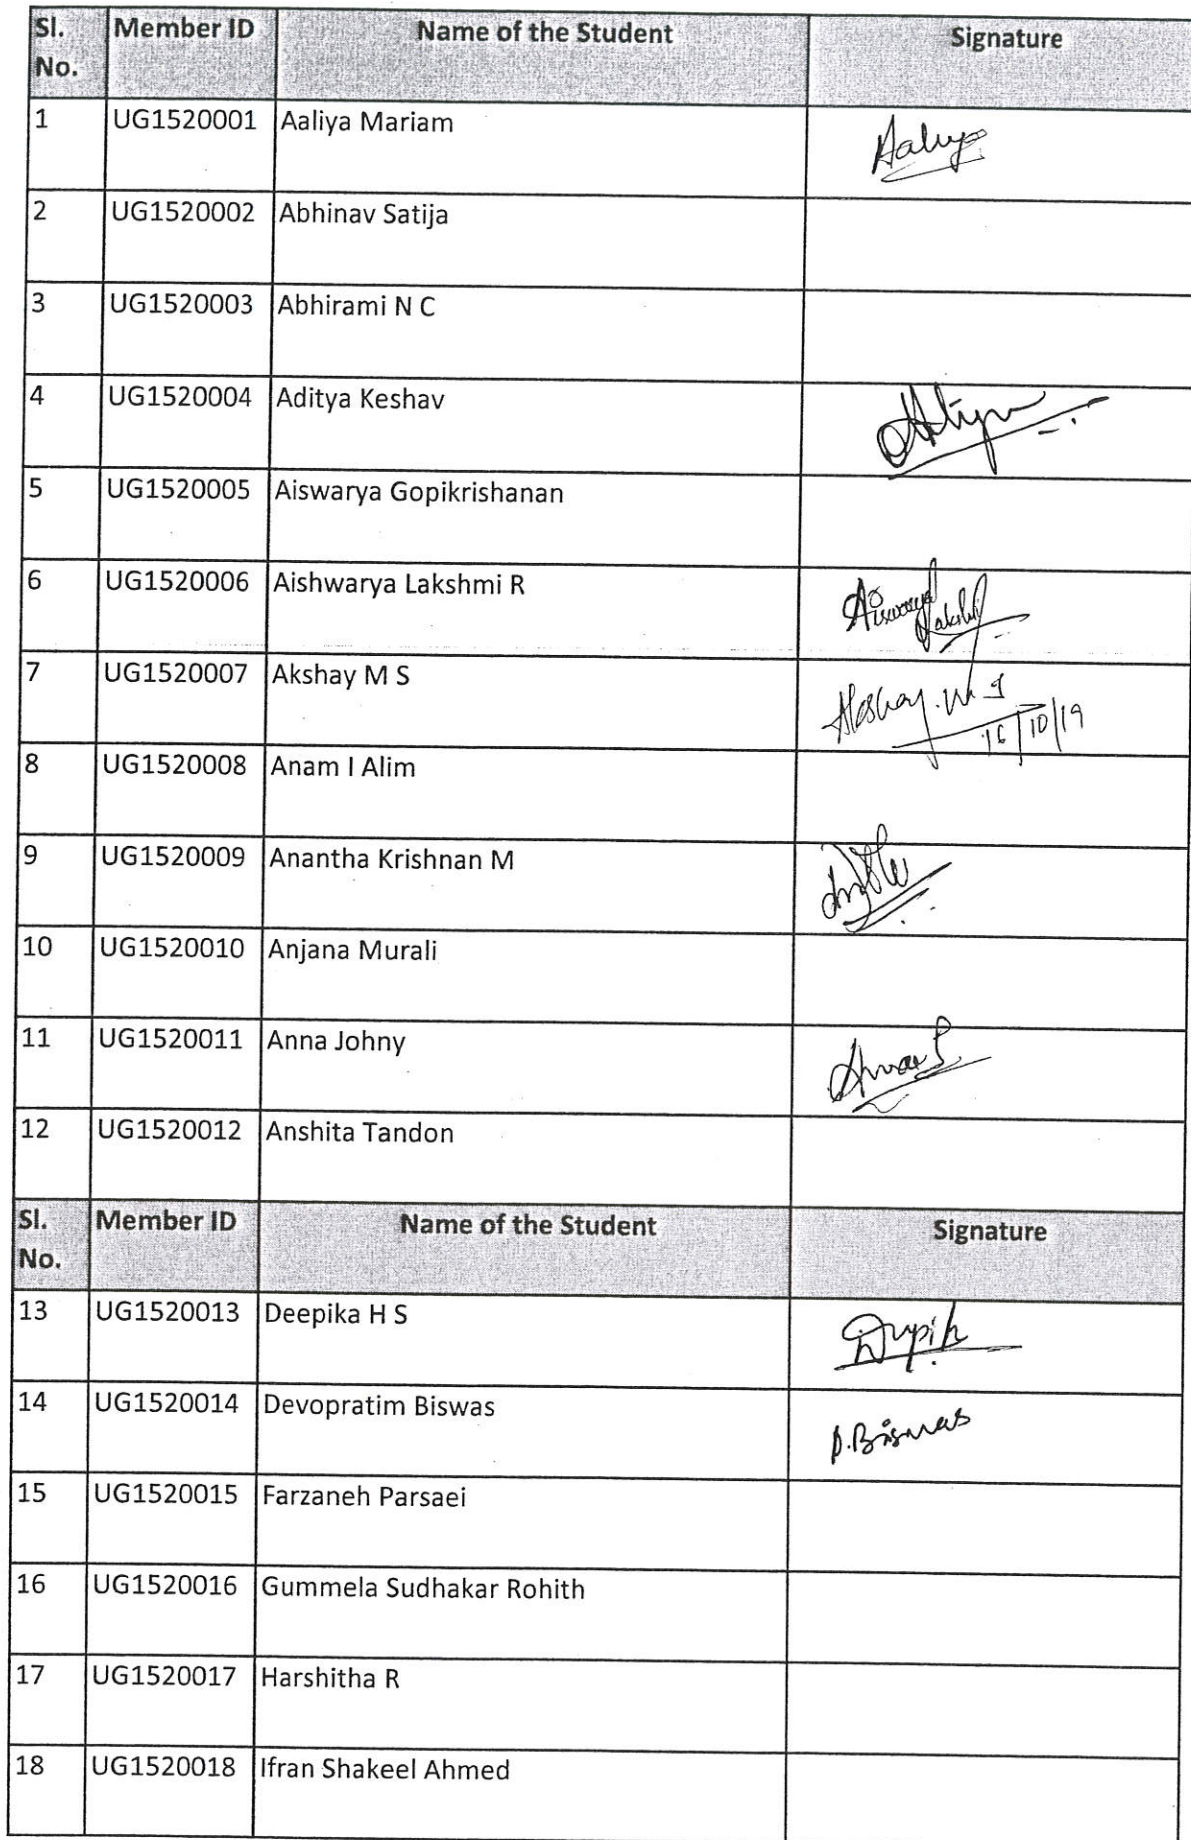 Sl. No. Member ID Name of the Student Signature
1 UG1520001 Aaliya Mariam Aaliya
2 UG1520002 Abhinav Satija
3 UG1520003 Abhirami N C
4 UG1520004 Aditya Keshav
5 UG1520005 Aiswarya Gopikrishanan
6 UG1520006 Aishwarya Lakshmi R Aiswarya Lakshmi
7 UG1520007 Akshay M S Akshay. M S
16/10/19
8 UG1520008 Anam I Alim
9 UG1520009 Anantha Krishnan M
10 UG1520010 Anjana Murali
11 UG1520011 Anna Johny
12 UG1520012 Anshita Tandon
Sl. No. Member ID Name of the Student Signature
13 UG1520013 Deepika H S
14 UG1520014 Devopratim Biswas D. Biswas
15 UG1520015 Farzaneh Parsaei
16 UG1520016 Gummela Sudhakar Rohith
17 UG1520017 Harshitha R
18 UG1520018 Ifran Shakeel Ahmed